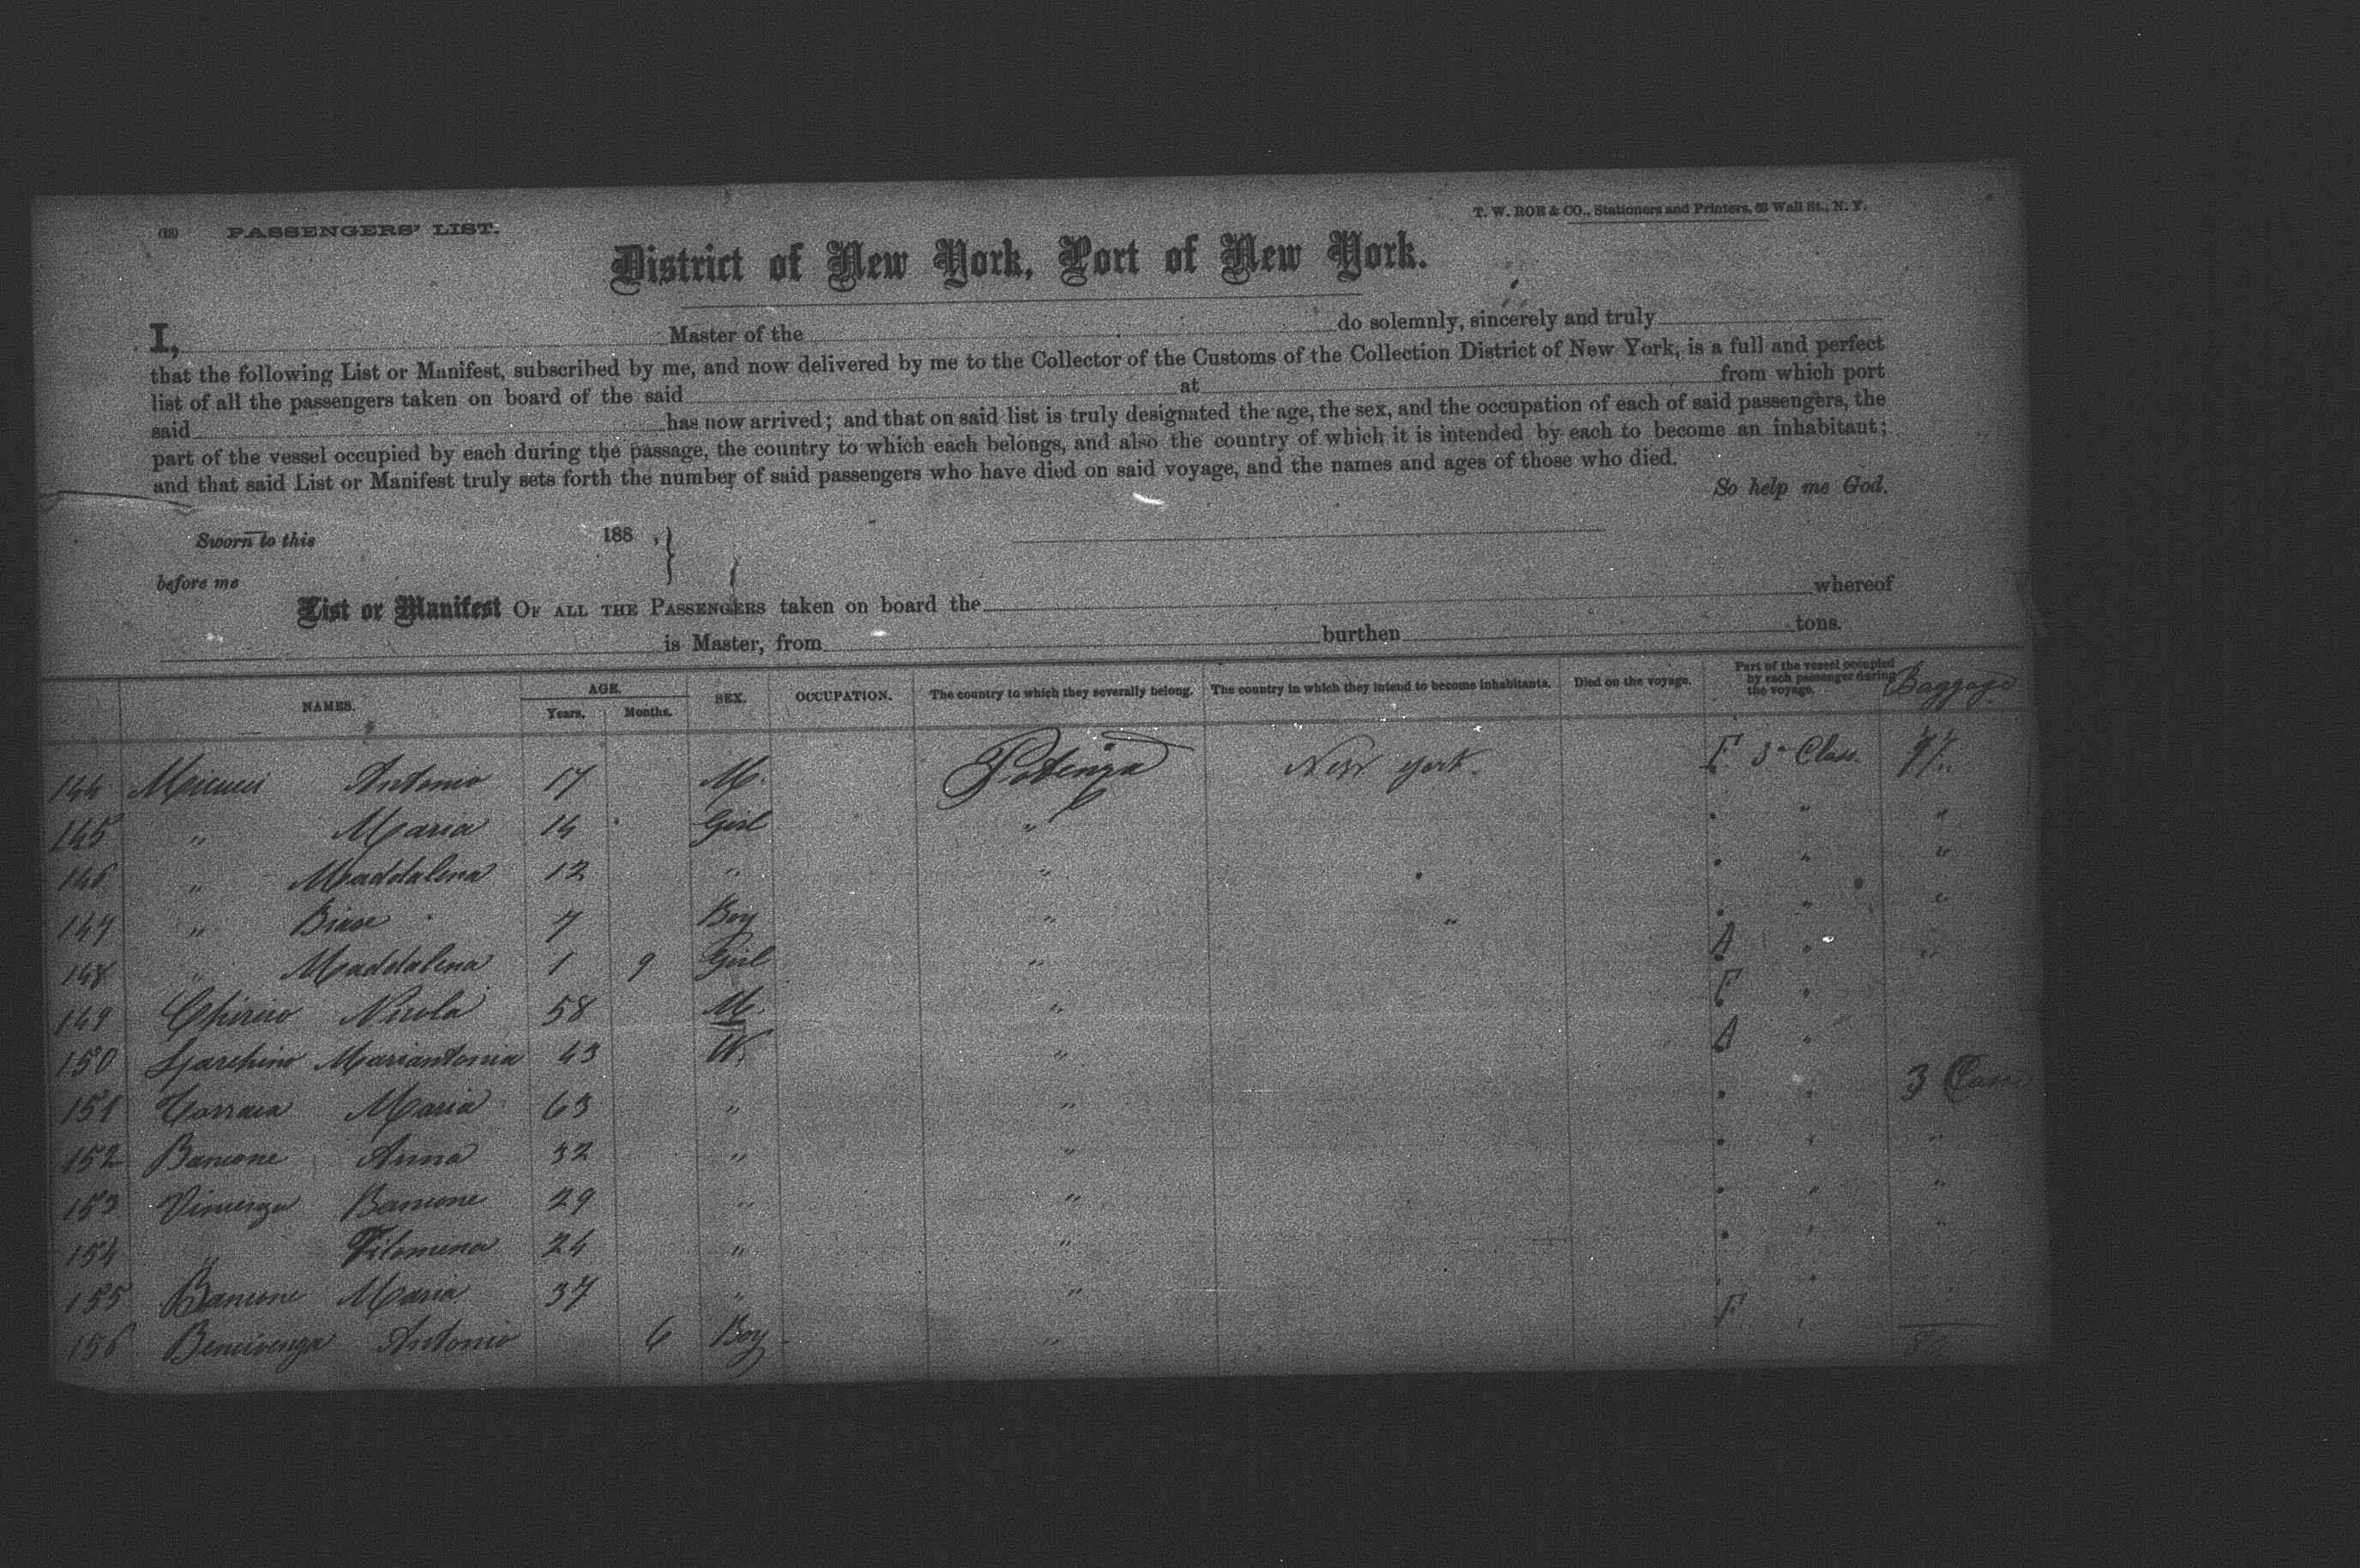 (18) PASSENGERS' LIST.
T. W. ROB & CO., Stationers and Printers, 63 Wall St., N. Y.
District of New York, Port of New York.
I, Master of the do solemnly, sincerely and truly
that the following List or Manifest, subscribed by me, and now delivered by me to the Collector of the Customs of the Collection District of New York, is a full and perfect
list of all the passengers taken on board of the said at from which port
said has now arrived; and that on said list is truly designated the age, the sex, and the occupation of each of said passengers, the
part of the vessel occupied by each during the passage, the country to which each belongs, and also the country of which it is intended by each to become an inhabitant;
and that said List or Manifest truly sets forth the number of said passengers who have died on said voyage, and the names and ages of those who died.
So help me God.
Sworn to this 188 , }
before me
List or Manifest OF ALL THE PASSENGERS taken on board the whereof
is Master, from burthen tons.
NAMES. AGE. Years. Months. SEX. OCCUPATION. The country to which they severally belong. The country in which they intend to become inhabitants. Died on the voyage. Part of the vessel occupied by each passenger during the voyage. Baggage
144 Micucci Antonio 17 M. Potenza New York. F 3a Class.
145 " Maria 14 Girl " . " "
146 " Maddalena 12 " " . " "
147 " Biase 7 Boy " " . " "
148 " Maddalena 1 9 Girl " A " "
149 Chirico Nicola 58 M. " F "
150 Mariantonia 43 W. " A "
151 Maria 63 " " . " 3
152 Bancone Anna 32 " " . " "
153 Vincenza Bancone 29 " " . " "
154 " Filomena 24 " " . " "
155 Bancone Maria 37 " " "
156 Bencivenga Antonio 6 Boy " F "